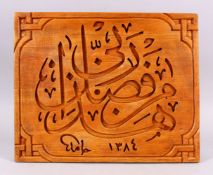 هذا من فضل ربي
حامد ١٣٨٤